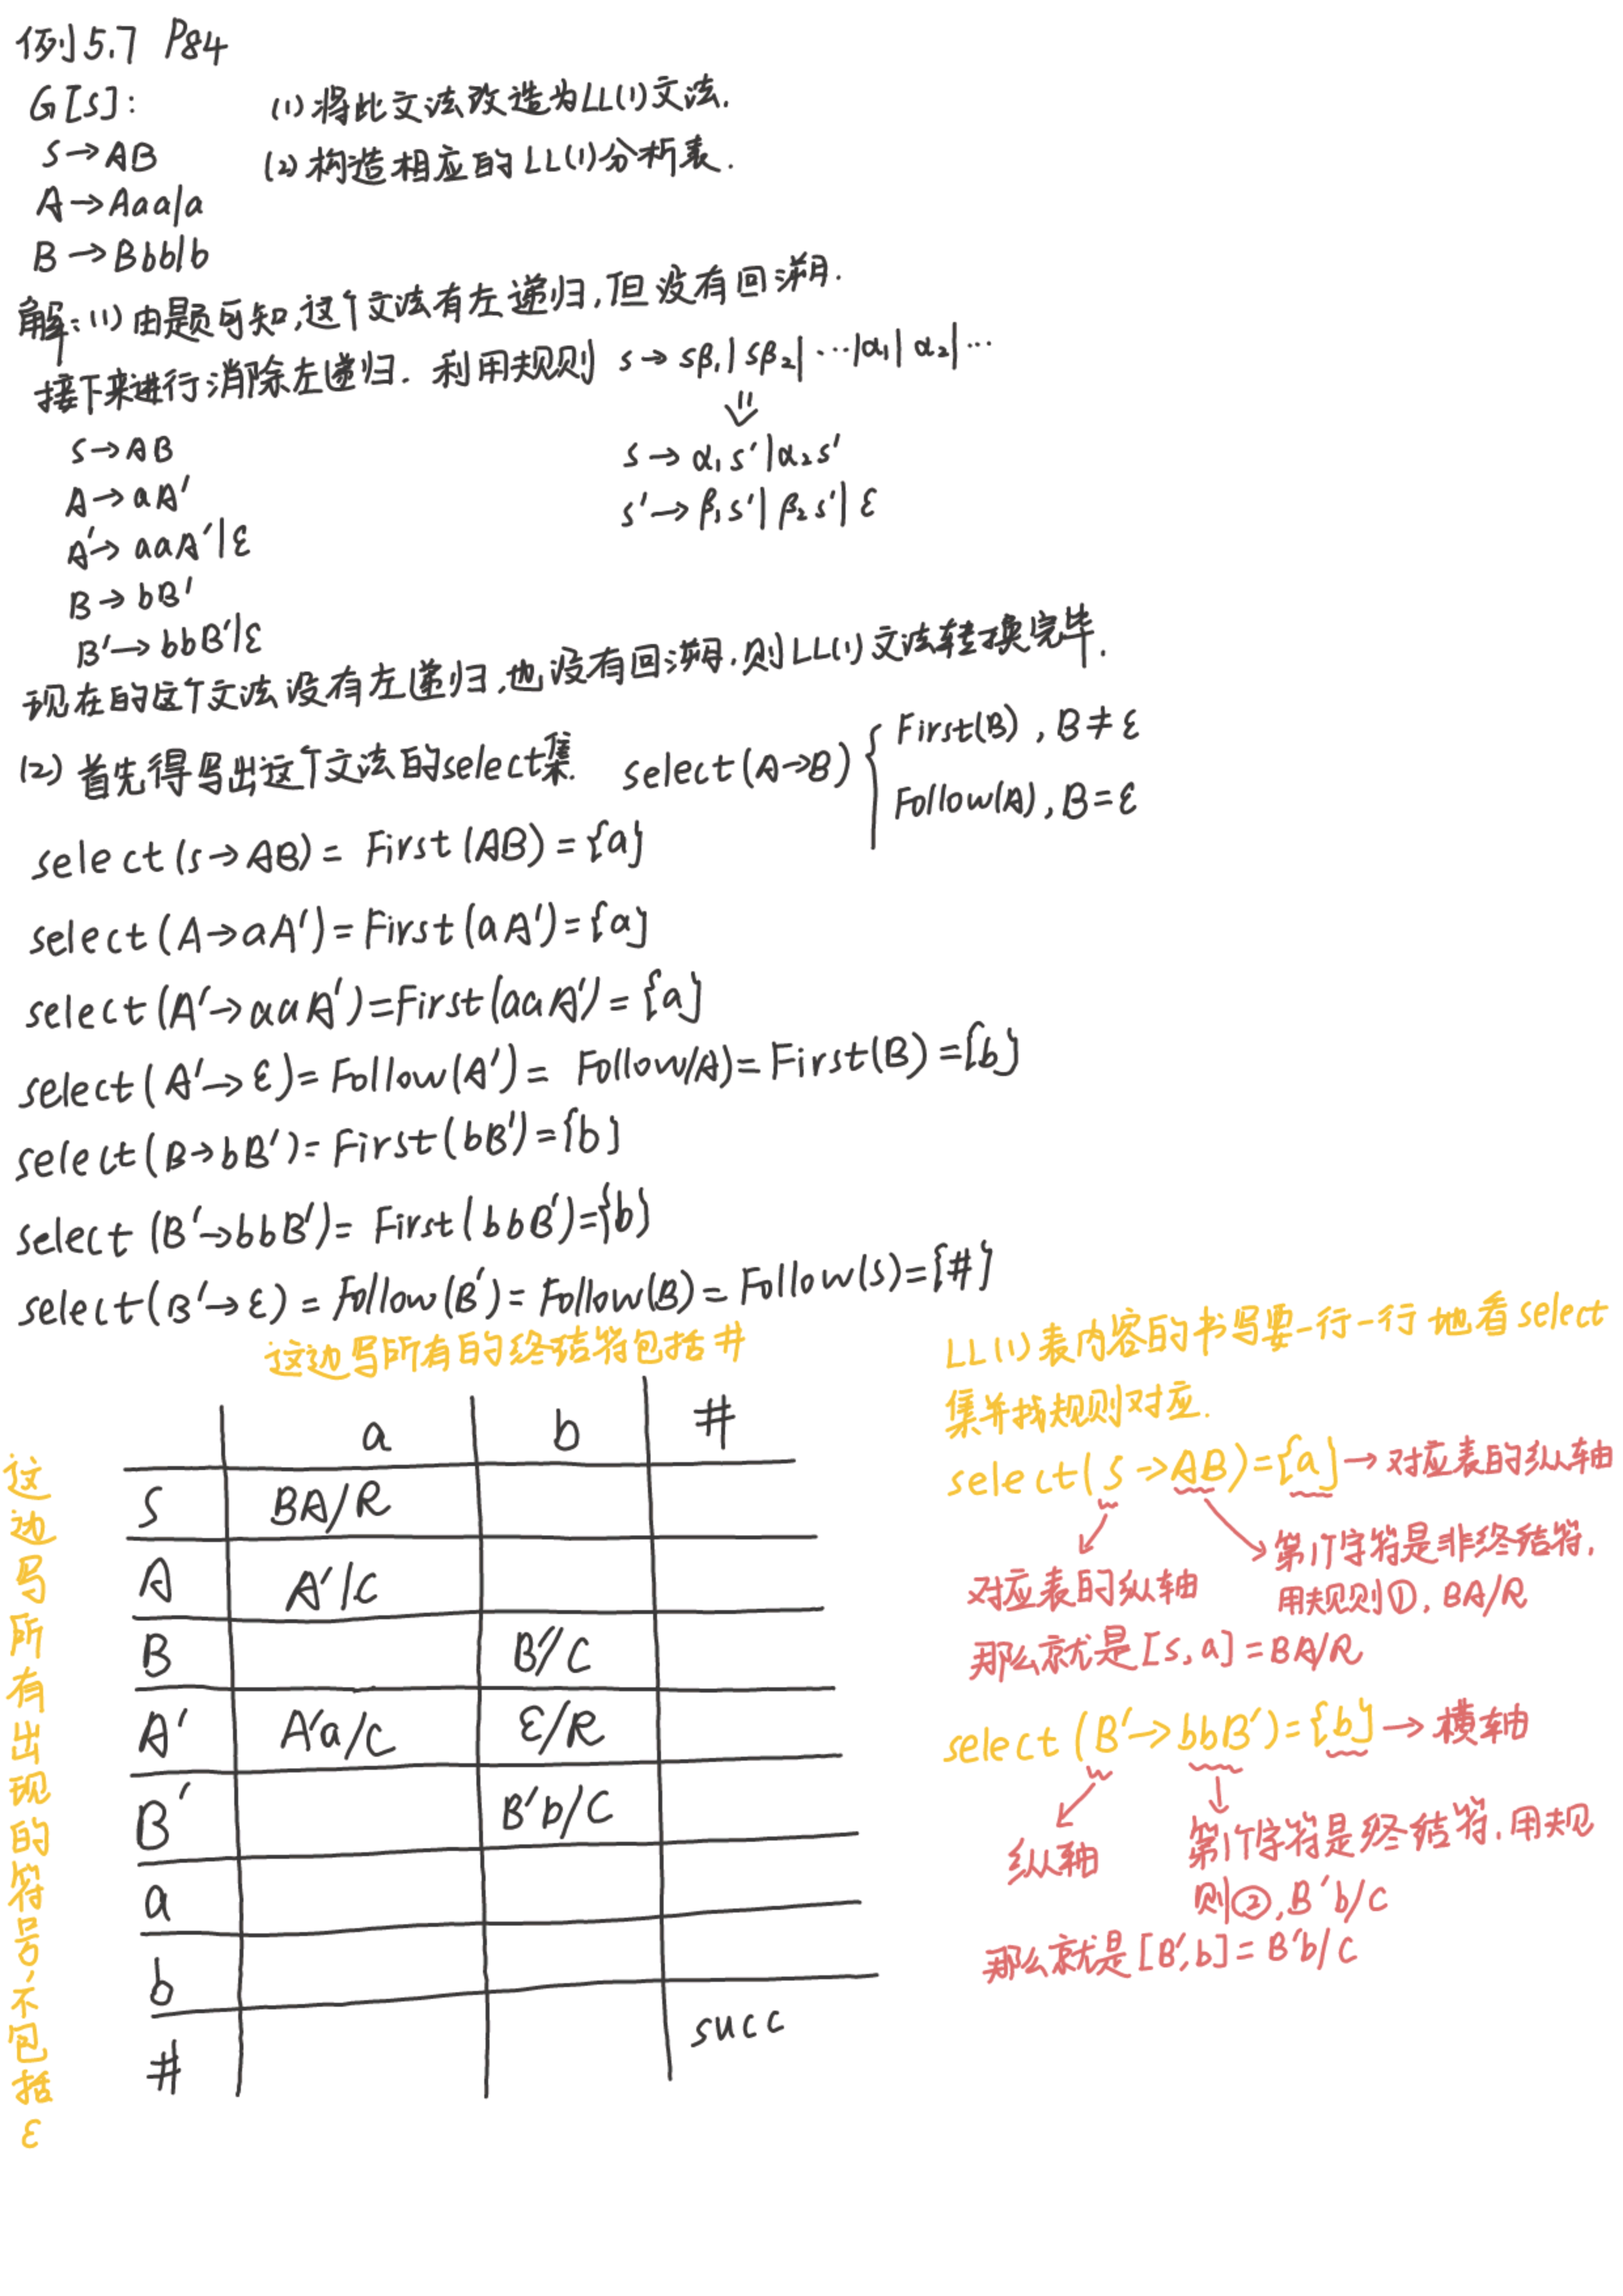 例5.7 P84
G[S]:
(1)将此文法改造为LL(1)文法.
S→AB
(2)构造相应的LL(1)分析表.
A→Aaa|a
B→Bbb|b
解:(1)由题可知,这个文法有左递归,但没有回溯.
接下来进行消除左递归. 利用规则 S→Sβ₁|Sβ₂|…|α₁|α₂|…
⇓
S→AB
S→α₁S'|α₂S'
A→aA'
S'→β₁S'|β₂S'|ε
A'→aaA'|ε
B→bB'
B'→bbB'|ε
现在的这个文法没有左递归,也没有回溯,则LL(1)文法转换完毕.
(2)首先得写出这个文法的select集. select(A→B) { First(B),B≠ε
Follow(A),B=ε
select(S→AB)=First(AB)={a}
select(A→aA')=First(aA')={a}
select(A'→aaA')=First(aaA')={a}
select(A'→ε)=Follow(A')=Follow(A)=First(B)={b}
select(B→bB')=First(bB')={b}
select(B'→bbB')=First(bbB')={b}
select(B'→ε)=Follow(B')=Follow(B)=Follow(S)={#}
这边写所有的终结符包括#
这边写所有出现的符号,不包括ε
a b #
S BA/R
A A'/C
B B'/C
A' A'a/C ε/R
B' B'b/C
a
b
# succ
LL(1)表内容的书写要一行一行地看select
集并找规则对应.
select(S→AB)={a}→对应表的纵轴
第1个字符是非终结符,
对应表的纵轴
用规则①,BA/R
那么就是[S,a]=BA/R
select(B'→bbB')={b}→横轴
纵轴
第1个字符是终结符,用规
则②,B'b/C
那么就是[B',b]=B'b/C